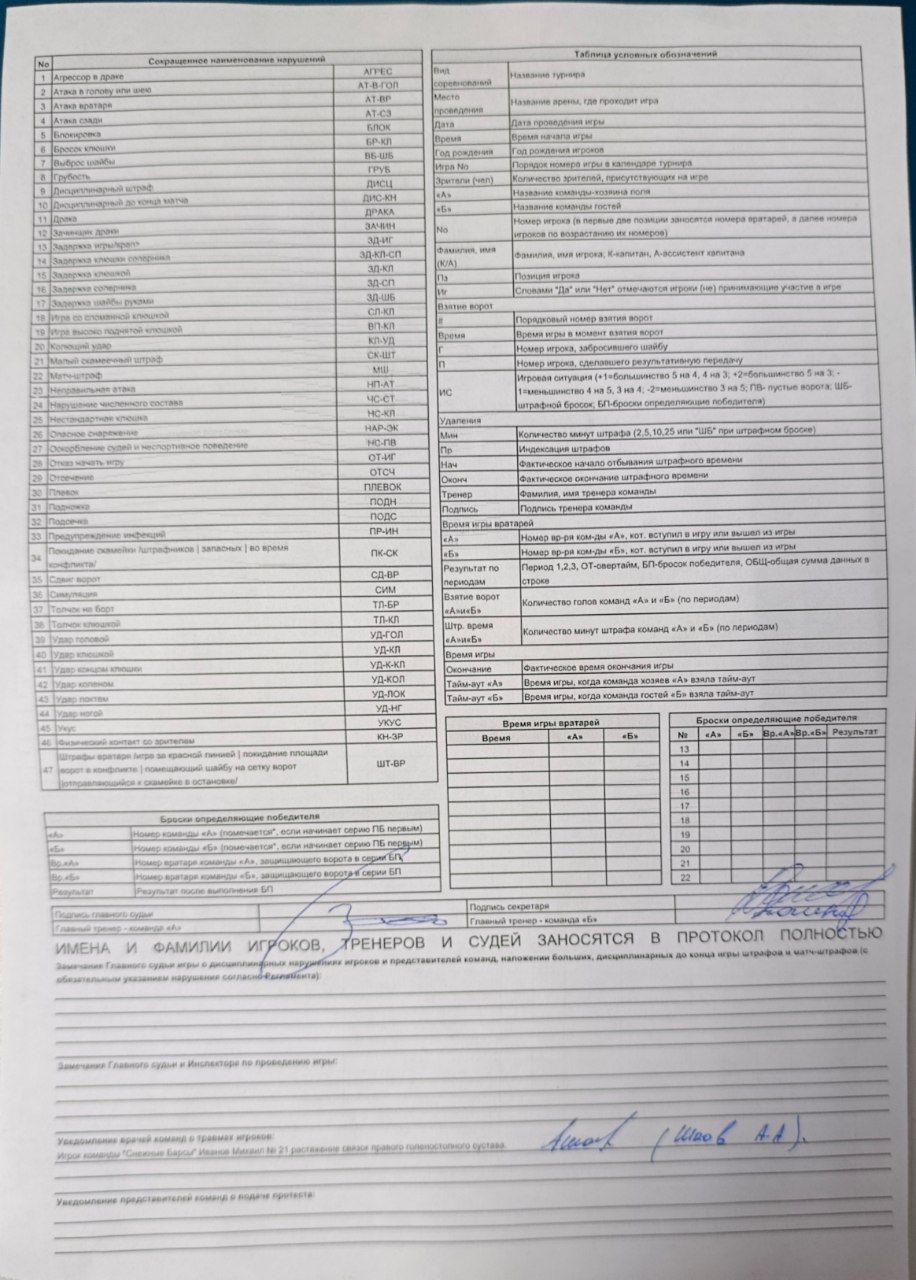 No Сокращенное наименование нарушений
1 Агрессор в драке АГРЕС
2 Атака в голову или шею АТ-В-ГОЛ
3 Атака вратаря АТ-ВР
4 Атака сзади АТ-СЗ
5 Блокировка БЛОК
6 Бросок клюшки БР-КЛ
7 Выброс шайбы ВБ-ШБ
8 Грубость ГРУБ
9 Дисциплинарный штраф ДИСЦ
10 Дисциплинарный до конца матча ДИС-КН
11 Драка ДРАКА
12 Зачинщик драки ЗАЧИН
13 Задержка игры/крап> ЗД-ИГ
14 Задержка клюшки соперника ЗД-КЛ-СП
15 Задержка клюшкой ЗД-КЛ
16 Задержка соперника ЗД-СП
17 Задержка шайбы руками ЗД-ШБ
18 Игра со сломанной клюшкой СЛ-КЛ
19 Игра высоко поднятой клюшкой ВП-КЛ
20 Колющий удар КЛ-УД
21 Малый скамеечный штраф СК-ШТ
22 Матч-штраф МШ
23 Неправильная атака НП-АТ
24 Нарушение численного состава ЧС-СТ
25 Нестандартная клюшка НС-КЛ
26 Опасное снаряжение НАР-ЭК
27 Оскорбление судей и неспортивное поведение НС-ПВ
28 Отказ начать игру ОТ-ИГ
29 Отсечение ОТСЧ
30 Плевок ПЛЕВОК
31 Подножка ПОДН
32 Подсечка ПОДС
33 Предупреждение инфекций ПР-ИН
34 Покидание скамейки /штрафников | запасных | во время конфликта/ ПК-СК
35 Сдвиг ворот СД-ВР
36 Симуляция СИМ
37 Толчок на борт ТЛ-БР
38 Толчок клюшкой ТЛ-КЛ
39 Удар головой УД-ГОЛ
40 Удар клюшкой УД-КЛ
41 Удар концом клюшки УД-К-КЛ
42 Удар коленом УД-КОЛ
43 Удар локтем УД-ЛОК
44 Удар ногой УД-НГ
45 Укус УКУС
46 Физический контакт со зрителем КН-ЗР
47 Штрафы вратаря /игра за красной линией | покидание площади
ворот в конфликте | помещающий шайбу на сетку ворот
|отправляющийся к скамейке в остановке/ ШТ-ВР
Таблица условных обозначений
Вид соревнований Название турнира
Место проведения Название арены, где проходит игра
Дата Дата проведения игры
Время Время начала игры
Год рождения Год рождения игроков
Игра No Порядок номера игры в календаре турнира
Зрители (чел) Количество зрителей, присутствующих на игре
«А» Название команды-хозяина поля
«Б» Название команды гостей
No Номер игрока (в первые две позиции заносятся номера вратарей, а далее номера
игроков по возрастанию их номеров)
Фамилия, имя (К/А) Фамилия, имя игрока, К-капитан, А-ассистент капитана
Пз Позиция игрока
Иг Словами "Да" или "Нет" отмечаются игроки (не) принимающие участие в игре
Взятие ворот
# Порядковый номер взятия ворот
Время Время игры в момент взятия ворот
Г Номер игрока, забросившего шайбу
П Номер игрока, сделавшего результативную передачу
ИС Игровая ситуация (+1=большинство 5 на 4, 4 на 3; +2=большинство 5 на 3; -
1=меньшинство 4 на 5, 3 на 4; -2=меньшинство 3 на 5; ПВ- пустые ворота; ШБ-
штрафной бросок; БП-броски определяющие победителя)
Удаления
Мин Количество минут штрафа (2,5,10,25 или "ШБ" при штрафном броске)
Пр Индексация штрафов
Нач Фактическое начало отбывания штрафного времени
Оконч Фактическое окончание штрафного времени
Тренер Фамилия, имя тренера команды
Подпись Подпись тренера команды
Время игры вратарей
«А» Номер вр-ря ком-ды «А», кот. вступил в игру или вышел из игры
«Б» Номер вр-ря ком-ды «Б», кот. вступил в игру или вышел из игры
Результат по периодам Период 1,2,3, ОТ-овертайм, БП-бросок победителя, ОБЩ-общая сумма данных в
строке
Взятие ворот «А»и«Б» Количество голов команд «А» и «Б» (по периодам)
Штр. время «А»и«Б» Количество минут штрафа команд «А» и «Б» (по периодам)
Время игры
Окончание Фактическое время окончания игры
Тайм-аут «А» Время игры, когда команда хозяев «А» взяла тайм-аут
Тайм-аут «Б» Время игры, когда команда гостей «Б» взяла тайм-аут
Время игры вратарей
Время «А» «Б»
Броски определяющие победителя
№ «А» «Б» Вр.«А» Вр.«Б» Результат
13
14
15
16
17
18
19
20
21
22
Броски определяющие победителя
«А» Номер команды «А» (помечается*, если начинает серию ПБ первым)
«Б» Номер команды «Б» (помечается*, если начинает серию ПБ первым)
Вр.«А» Номер вратаря команды «А», защищающего ворота в серии БП
Вр.«Б» Номер вратаря команды «Б», защищающего ворота в серии БП
Результат Результат после выполнения БП
Подпись главного судьи Подпись секретаря
Главный тренер - команда «А» Главный тренер - команда «Б»
ИМЕНА И ФАМИЛИИ ИГРОКОВ, ТРЕНЕРОВ И СУДЕЙ ЗАНОСЯТСЯ В ПРОТОКОЛ ПОЛНОСТЬЮ
Замечания Главного судьи игры о дисциплинарных нарушениях игроков и представителей команд, наложении больших, дисциплинарных до конца игры штрафов и матч-штрафов (с
обязательным указанием нарушение согласно Регламента):
Замечания Главного судьи и Инспектора по проведению игры:
Уведомление врачей команд о травмах игроков:
Игрок команды "Снежные Барсы" Иванов Михаил № 21 растяжение связок правого голеностопного сустава.
(Шаов А.А).
Уведомление представителей команд о подаче протеста: